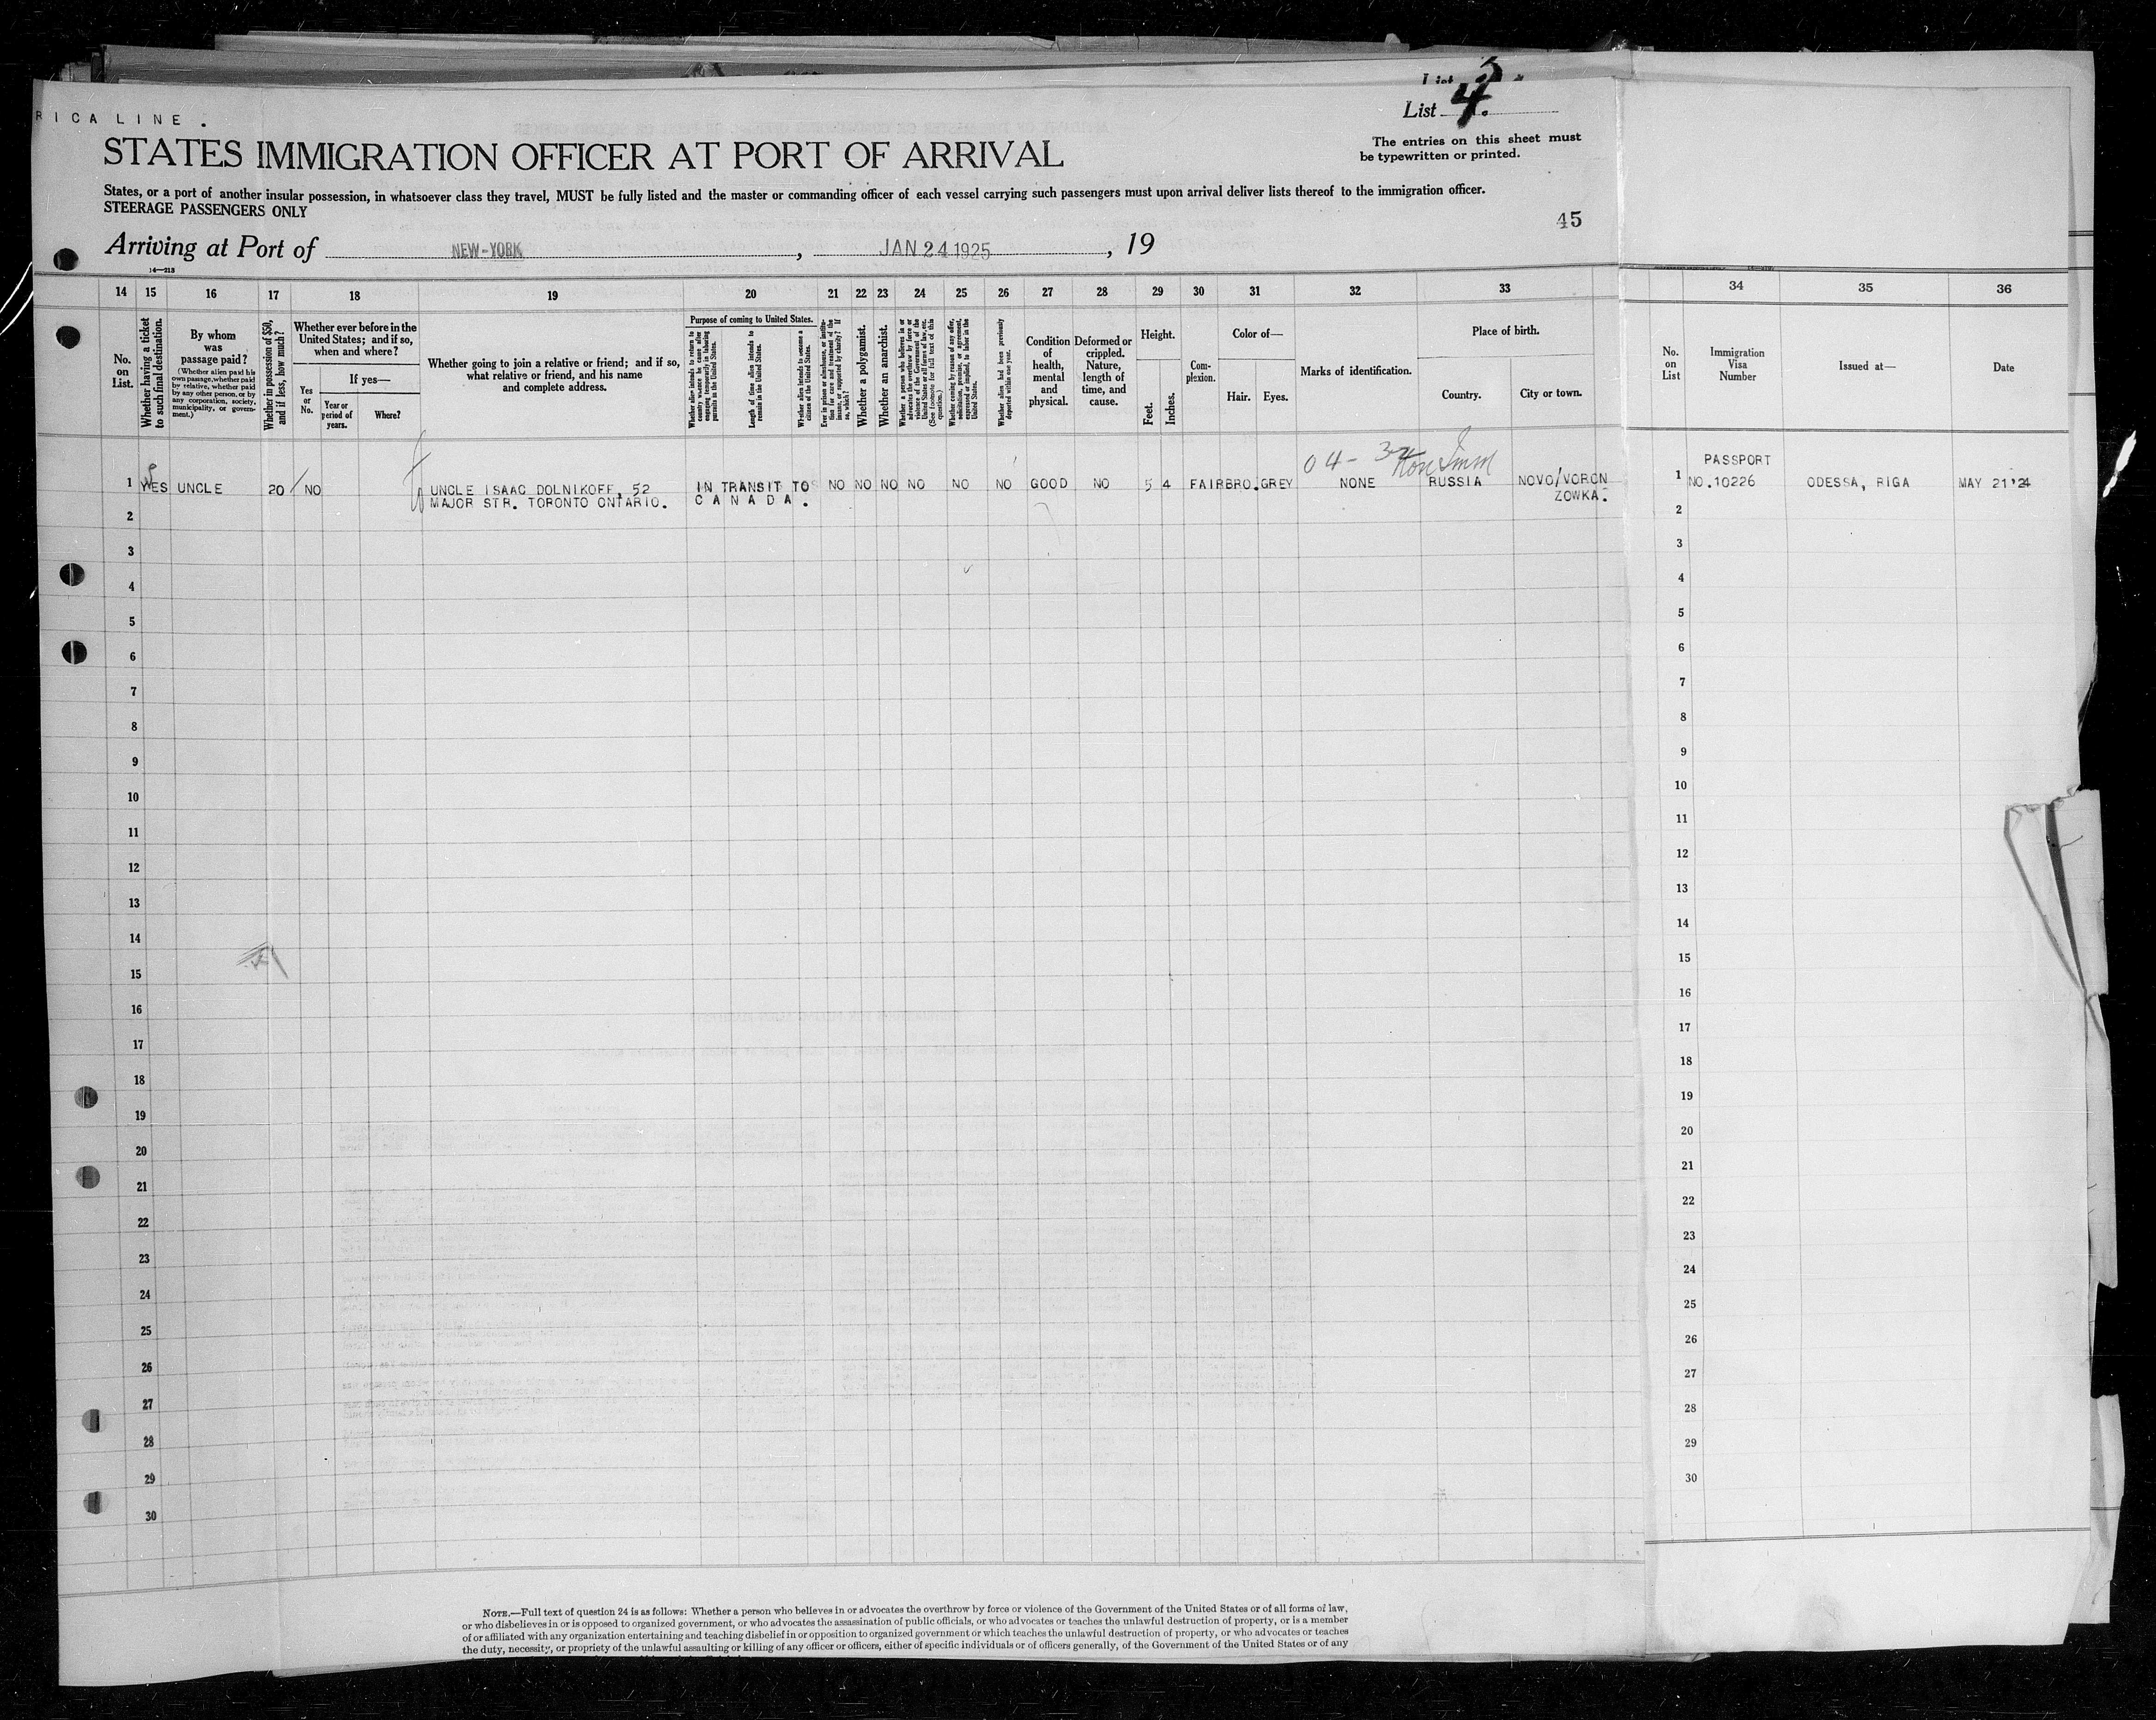 RICA LINE .
List 3
List 4.
The entries on this sheet must
be typewritten or printed.
STATES IMMIGRATION OFFICER AT PORT OF ARRIVAL
States, or a port of another insular possession, in whatsoever class they travel, MUST be fully listed and the master or commanding officer of each vessel carrying such passengers must upon arrival deliver lists thereof to the immigration officer.
STEERAGE PASSENGERS ONLY
45
Arriving at Port of NEW-YORK , JAN 24 1925 , 19
14—213
14 15 16 17 18 19 20 21 22 23 24 25 26 27 28 29 30 31 32 33 34 35 36
No.
on
List.
Whether having a ticket
to such final destination.
By whom
was
passage paid?
(Whether alien paid his
own passage, whether paid
by relative, whether paid
by any other person, or by
any corporation, society,
municipality, or govern-
ment.)
Whether in possession of $50,
and if less, how much?
Whether ever before in the
United States; and if so,
when and where?
Yes
or
No.
If yes—
Year or
period of
years.
Where?
Whether going to join a relative or friend; and if so,
what relative or friend, and his name
and complete address.
Purpose of coming to United States.
Whether alien intends to return to
country whence he came after
engaging temporarily in laboring
pursuits in the United States.
Length of time alien intends to
remain in the United States.
Whether alien intends to become a
citizen of the United States.
Ever in prison or almshouse, or institu-
tion for care and treatment of the
insane, or supported by charity? If
so, which?
Whether a polygamist.
Whether an anarchist.
Whether a person who believes in or
advocates the overthrow by force or
violence of the Government of the
United States or all forms of law, etc.
(See footnote for full text of this
question.)
Whether coming by reason of any offer,
solicitation, promise, or agreement,
expressed or implied, to labor in the
United States.
Whether alien had been previously
deported within one year.
Condition
of
health,
mental
and
physical.
Deformed or
crippled.
Nature,
length of
time, and
cause.
Height.
Feet.
Inches.
Com-
plexion.
Color of—
Hair.
Eyes.
Marks of identification.
Place of birth.
Country.
City or town.
No.
on
List
Immigration
Visa
Number
Issued at—
Date
04 - 3 Non Imm
PASSPORT
1 YES UNCLE 20 / NO UNCLE ISAAC DOLNIKOFF, 52 IN TRANSIT TO NO NO NO NO NO NO GOOD NO 5 4 FAIR BRO. GREY NONE RUSSIA NOVO/VORON 1 NO.10226 ODESSA, RIGA MAY 21'24
MAJOR STR. TORONTO ONTARIO. CANADA. ZOWKA.
2 2
3 3
4 4
5 5
6 6
7 7
8 8
9 9
10 10
11 11
12 12
13 13
14 14
15 15
16 16
17 17
18 18
19 19
20 20
21 21
22 22
23 23
24 24
25 25
26 26
27 27
28 28
29 29
30 30
NOTE.—Full text of question 24 is as follows: Whether a person who believes in or advocates the overthrow by force or violence of the Government of the United States or of all forms of law,
or who disbelieves in or is opposed to organized government, or who advocates the assassination of public officials, or who advocates or teaches the unlawful destruction of property, or is a member
of or affiliated with any organization entertaining and teaching disbelief in or opposition to organized government or which teaches the unlawful destruction of property, or who advocates or teaches
the duty, necessity, or propriety of the unlawful assaulting or killing of any officer or officers, either of specific individuals or of officers generally, of the Government of the United States or of any